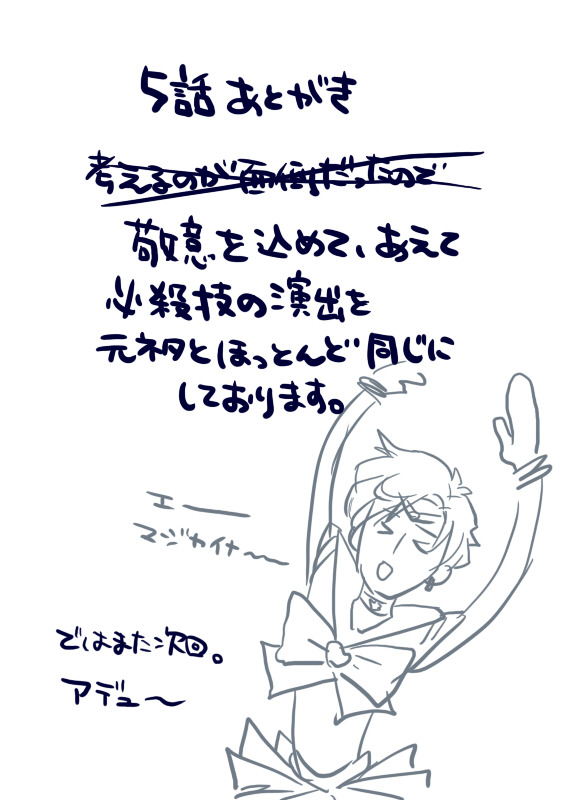 5話 あとがき
考えるのが面倒だったので
敬意を込めて、あえて
必殺技の演出を
元ネタとほっとんど同じに
しております。
エー――
マジカイナ～～
ではまた次回。
アデュー～